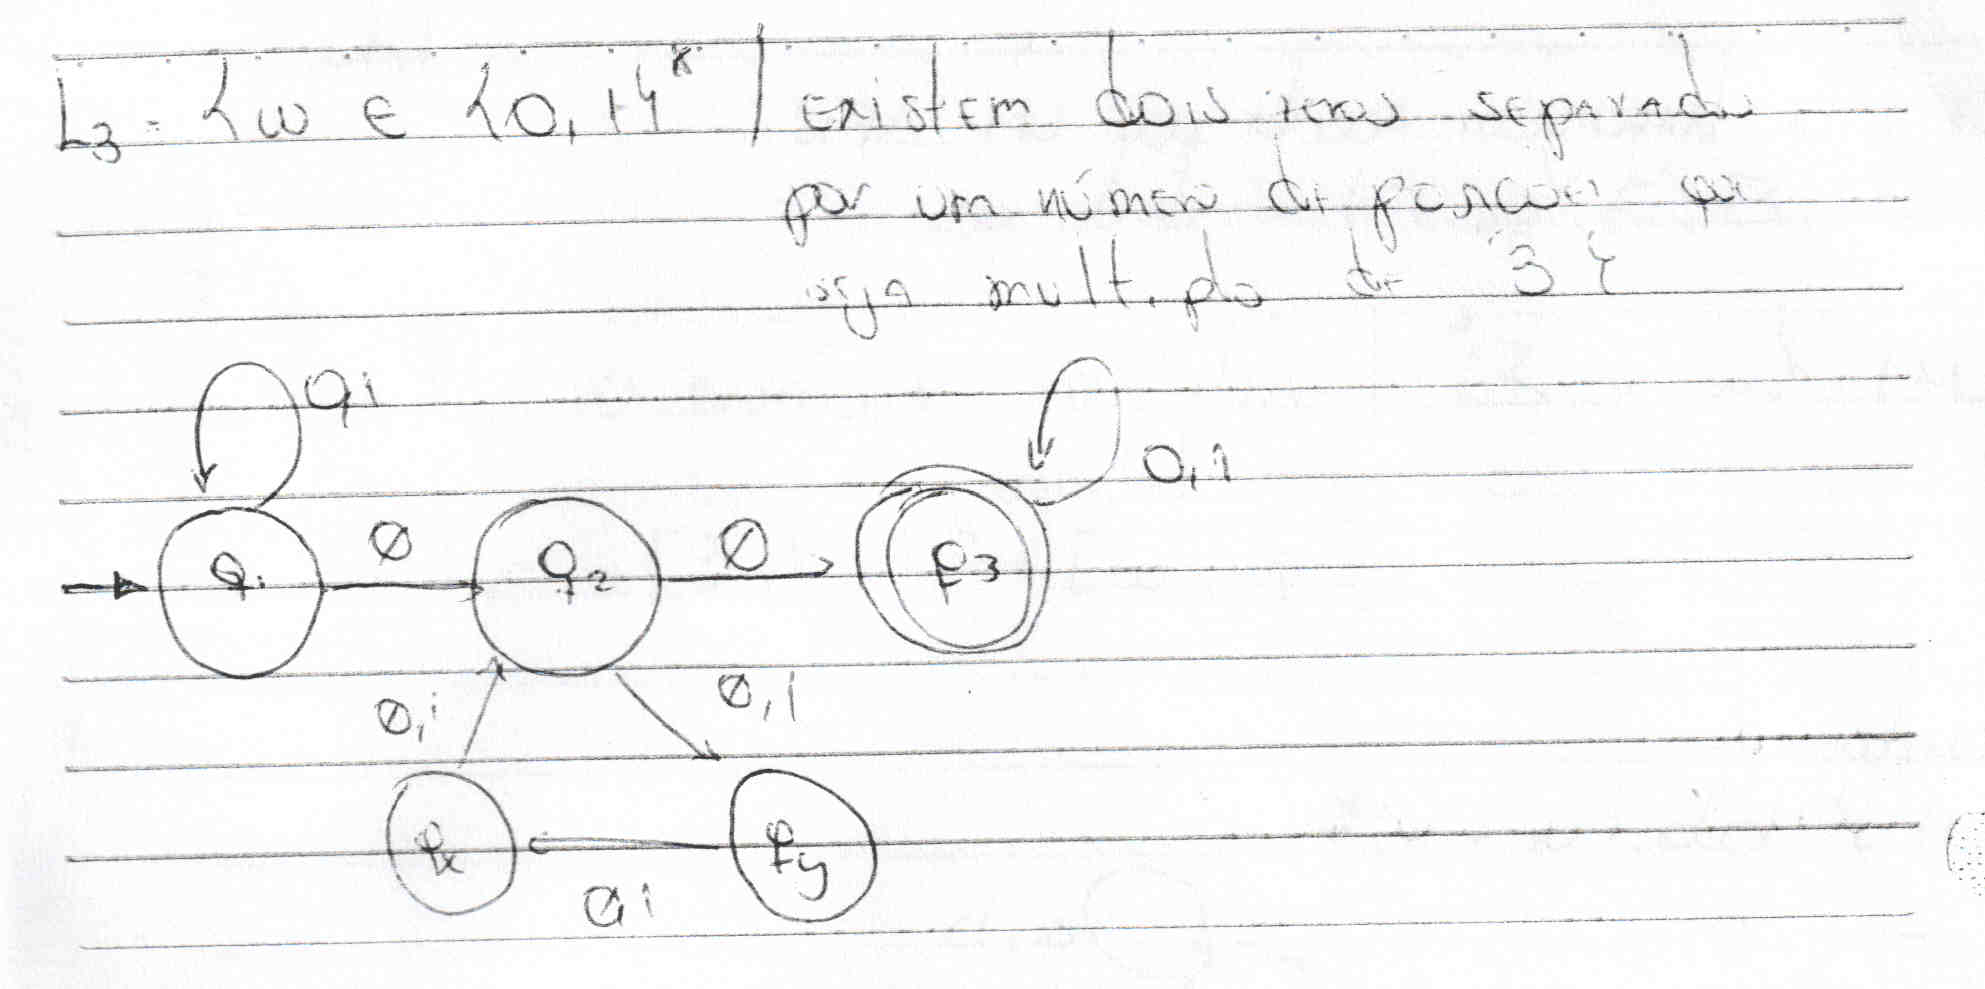 L3 = {w ∈ {0,1}* | Existem dois zeros separados
por um número de posições que
seja multiplo de 3}
0,1
0,1
q1 0 q2 0 q3
0,1 0,1
qx qy
0,1